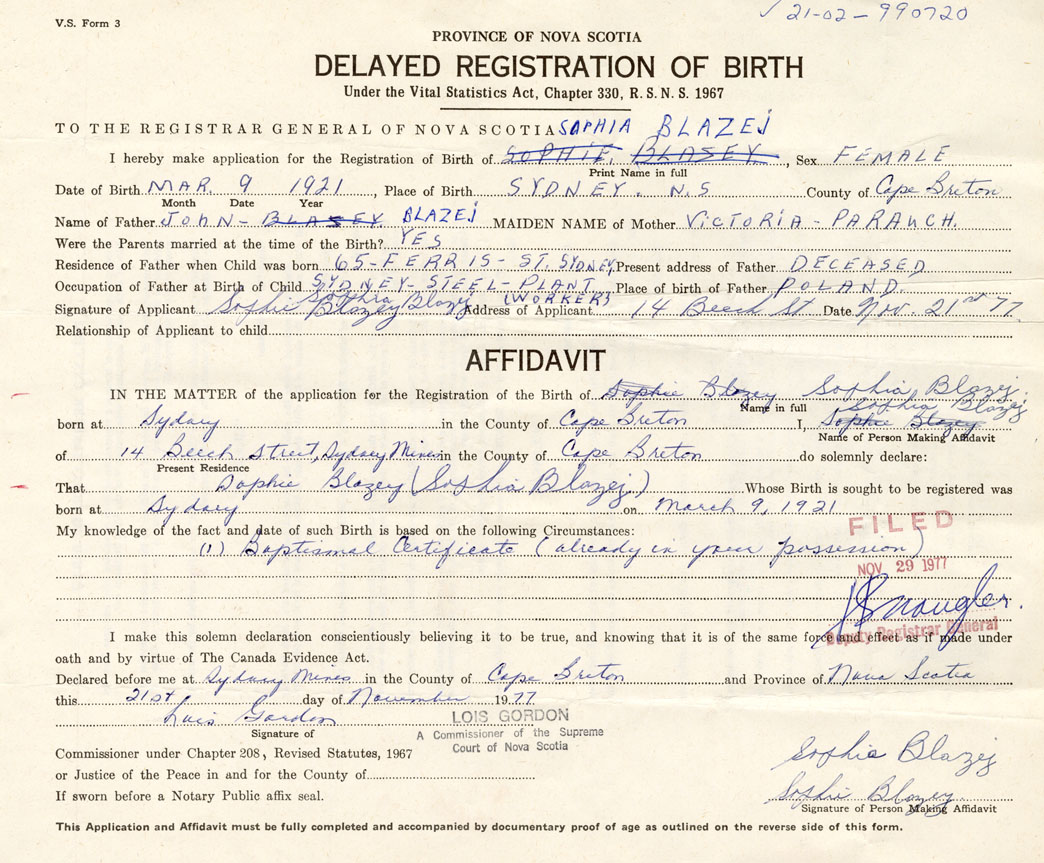 V.S. Form 3
✓ 21-02-990720
PROVINCE OF NOVA SCOTIA
DELAYED REGISTRATION OF BIRTH
Under the Vital Statistics Act, Chapter 330, R. S. N. S. 1967
TO THE REGISTRAR GENERAL OF NOVA SCOTIA SOPHIA BLAZEJ
I hereby make application for the Registration of Birth of SOPHIE BLASEY, Sex FEMALE
Print Name in full
Date of Birth MAR. 9 1921, Place of Birth SYDNEY. N.S County of Cape Breton
Month Date Year
Name of Father JOHN- BLASEY BLAZEJ MAIDEN NAME of Mother VICTORIA - PARAUCH.
Were the Parents married at the time of the Birth? YES
Residence of Father when Child was born 65-FERRIS-ST. SYDNEY, Present address of Father DECEASED
Occupation of Father at Birth of Child SYDNEY-STEEL-PLANT (WORKER) Place of birth of Father POLAND.
Signature of Applicant Sophie Blazey Sophia Blazej Address of Applicant 14 Beech St Date Nov. 21st 77
Relationship of Applicant to child
AFFIDAVIT
IN THE MATTER of the application for the Registration of Birth of Sophie Blazey Sophia Blazej
Name in full Sophia Blazej
born at Sydney in the County of Cape Breton I, Sophie Blazey
Name of Person Making Affidavit
of 14 Beech Street, Sydney Mines in the County of Cape Breton do solemnly declare:
Present Residence
That Sophie Blazey (Sophia Blazej) Whose Birth is sought to be registered was
born at Sydney on March 9, 1921
My knowledge of the fact and date of such Birth is based on the following Circumstances:
FILED
(1) Baptismal Certificate (already in your possession)
NOV 29 1977
Deputy Registrar General
I make this solemn declaration conscientiously believing it to be true, and knowing that it is of the same force and effect as if made under
oath and by virtue of The Canada Evidence Act.
Declared before me at Sydney Mines in the County of Cape Breton and Province of Nova Scotia
this 21st day of November 1977
Lois Gordon
LOIS GORDON
Signature of
A Commissioner of the Supreme
Court of Nova Scotia
Commissioner under Chapter 208, Revised Statutes, 1967
Sophia Blazej
or Justice of the Peace in and for the County of
Sophie Blazey
If sworn before a Notary Public affix seal.
Signature of Person Making Affidavit
This Application and Affidavit must be fully completed and accompanied by documentary proof of age as outlined on the reverse side of this form.